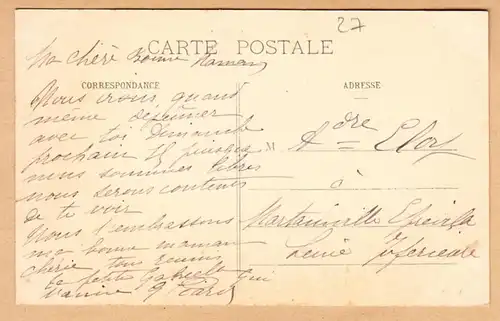 27
CARTE POSTALE
Ma chère bonne Maman
CORRESPONDANCE
ADRESSE
Nous irons quand
même déjeuner
avec toi Dimanche
prochain
nous sommes libres
nous serons contents
de te voir
Nous t'embrassons
ma bonne maman
chérie tous réunis
Ta petite qui
t'aime
M
à
Martainville Epreville
Seine Inférieure